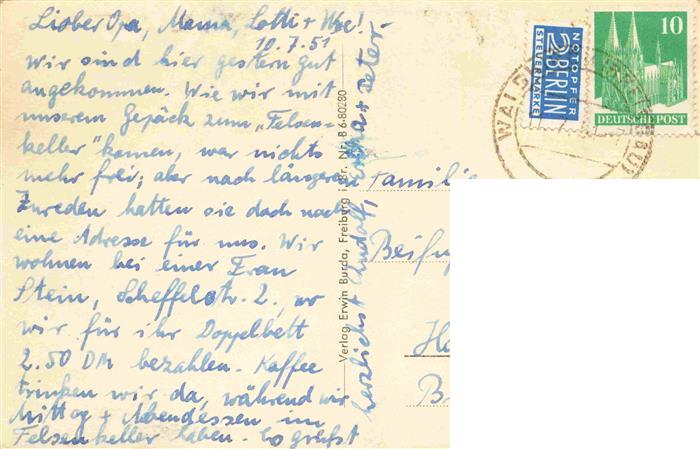 Lieber Opa, Mama, Lotti + Uwe!
10.7.51
Wir sind hier gestern gut
angekommen. Wie wir mit
unserem Gepäck zum „Felsen-
keller" kamen, war nichts
mehr frei; aber nach längerem
Zureden hatten sie doch noch
eine Adresse für uns. Wir
wohnen bei einer Frau
Stein, Scheffelstr. 2, wo
wir für ihr Doppelbett
2.50 DM bezahlen. Kaffee
trinken wir da, während wir
Mittag + Abendessen im
Felsenkeller haben. Es grüsst
herzlichst Rudolf, + Peter
Verlag Erwin Burda, Freiburg i. Br. Nr. B 6-80280
NOTOPFER
2 BERLIN
STEUERMARKE
10
DEUTSCHE POST
Familie